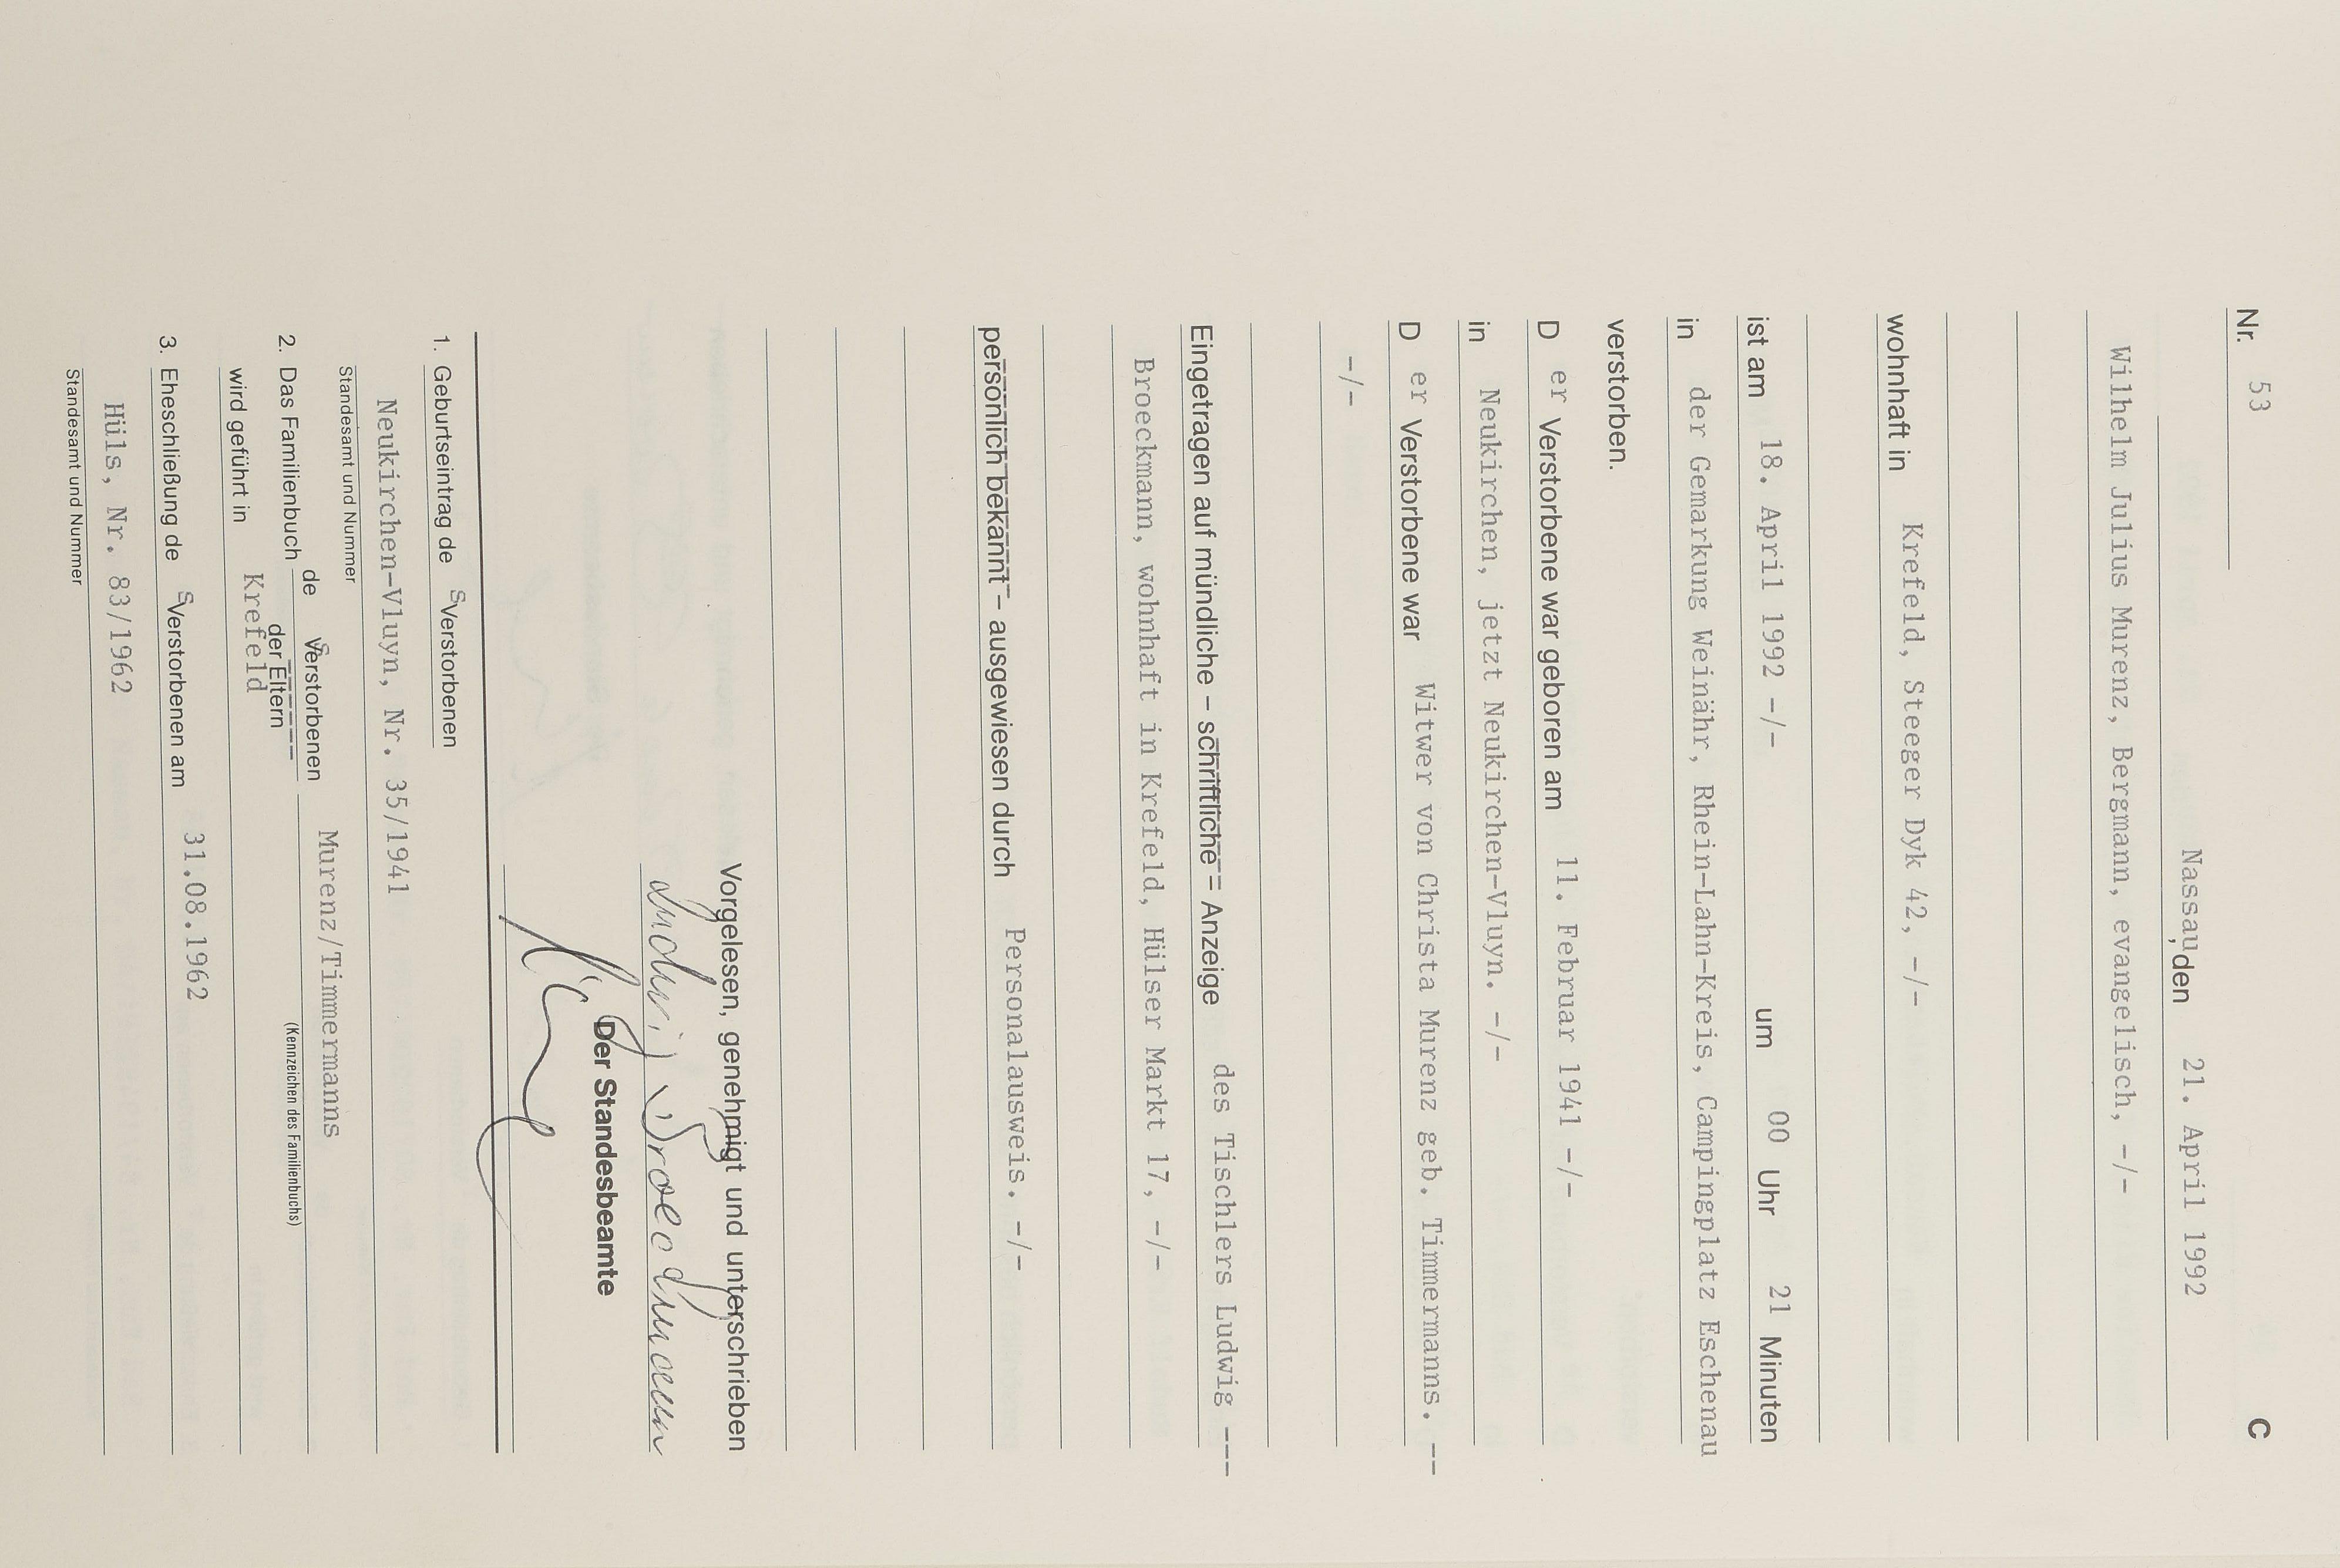 Nr. 53 C
Nassau, den 21. April 1992
Wilhelm Julius Murenz, Bergmann, evangelisch, -/-
wohnhaft in Krefeld, Steeger Dyk 42, -/-
ist am 18. April 1992 -/- um 00 Uhr 21 Minuten
in der Gemarkung Weinähr, Rhein-Lahn-Kreis, Campingplatz Eschenau
verstorben.
D er Verstorbene war geboren am 11. Februar 1941 -/-
in Neukirchen, jetzt Neukirchen-Vluyn. -/-
D er Verstorbene war Witwer von Christa Murenz geb. Timmermanns. --
-/-
Eingetragen auf mündliche – schriftliche – Anzeige des Tischlers Ludwig ---
Broeckmann, wohnhaft in Krefeld, Hülser Markt 17, -/-
persönlich bekannt – ausgewiesen durch Personalausweis. -/-
Vorgelesen, genehmigt und unterschrieben
Ludwig Broeckmann
Der Standesbeamte
1. Geburtseintrag de s Verstorbenen
Neukirchen-Vluyn, Nr. 35/1941
Standesamt und Nummer
2. Das Familienbuch de s Verstorbenen der Eltern Murenz/Timmermanns
(Kennzeichen des Familienbuchs)
wird geführt in Krefeld
3. Eheschließung de s Verstorbenen am 31.08.1962
Hüls, Nr. 83/1962
Standesamt und Nummer